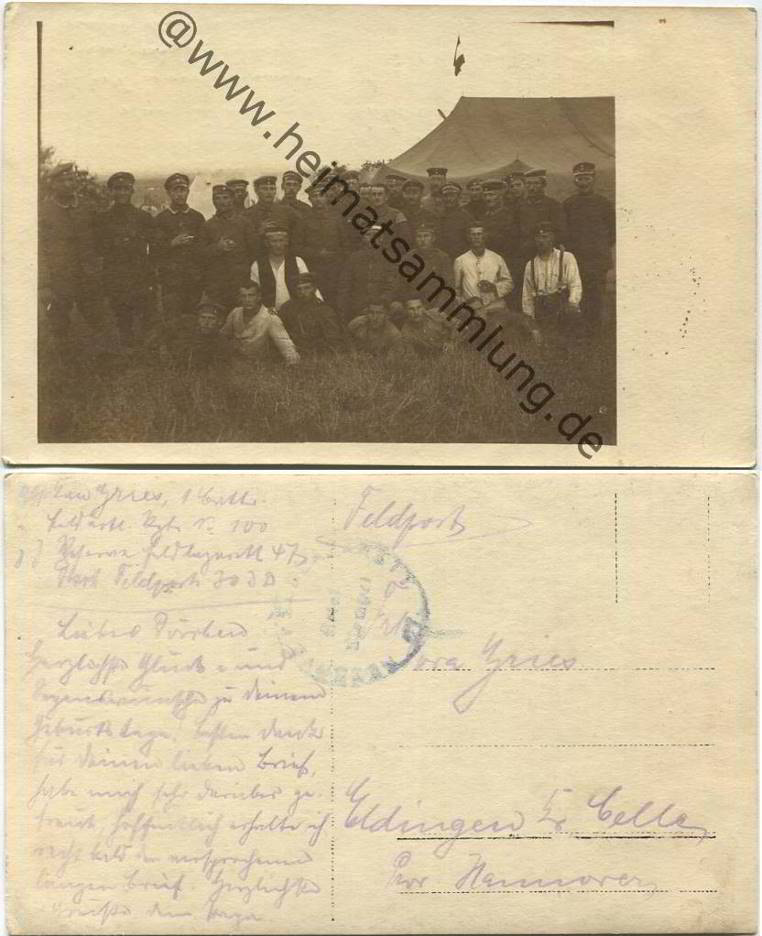 @www.heimatsammlung.de
Gries, 1 Batt.
Feldartl. Rgt. N. 100
Reserve Feldlazarett 47
Feldpost
Liebes Dorchen
Herzlichste Glück- und
Segenswünsche zu Deinem
Geburtstage. Besten Dank
für Deinen lieben Brief,
habe mich sehr darüber ge-
freut, hoffentlich erhalte ich
recht bald den versprochenen
langen Brief. Herzlichste
Grüße Dein
Feldpost
Dora Gries
Eldingen b. Celle
Prov. Hannover